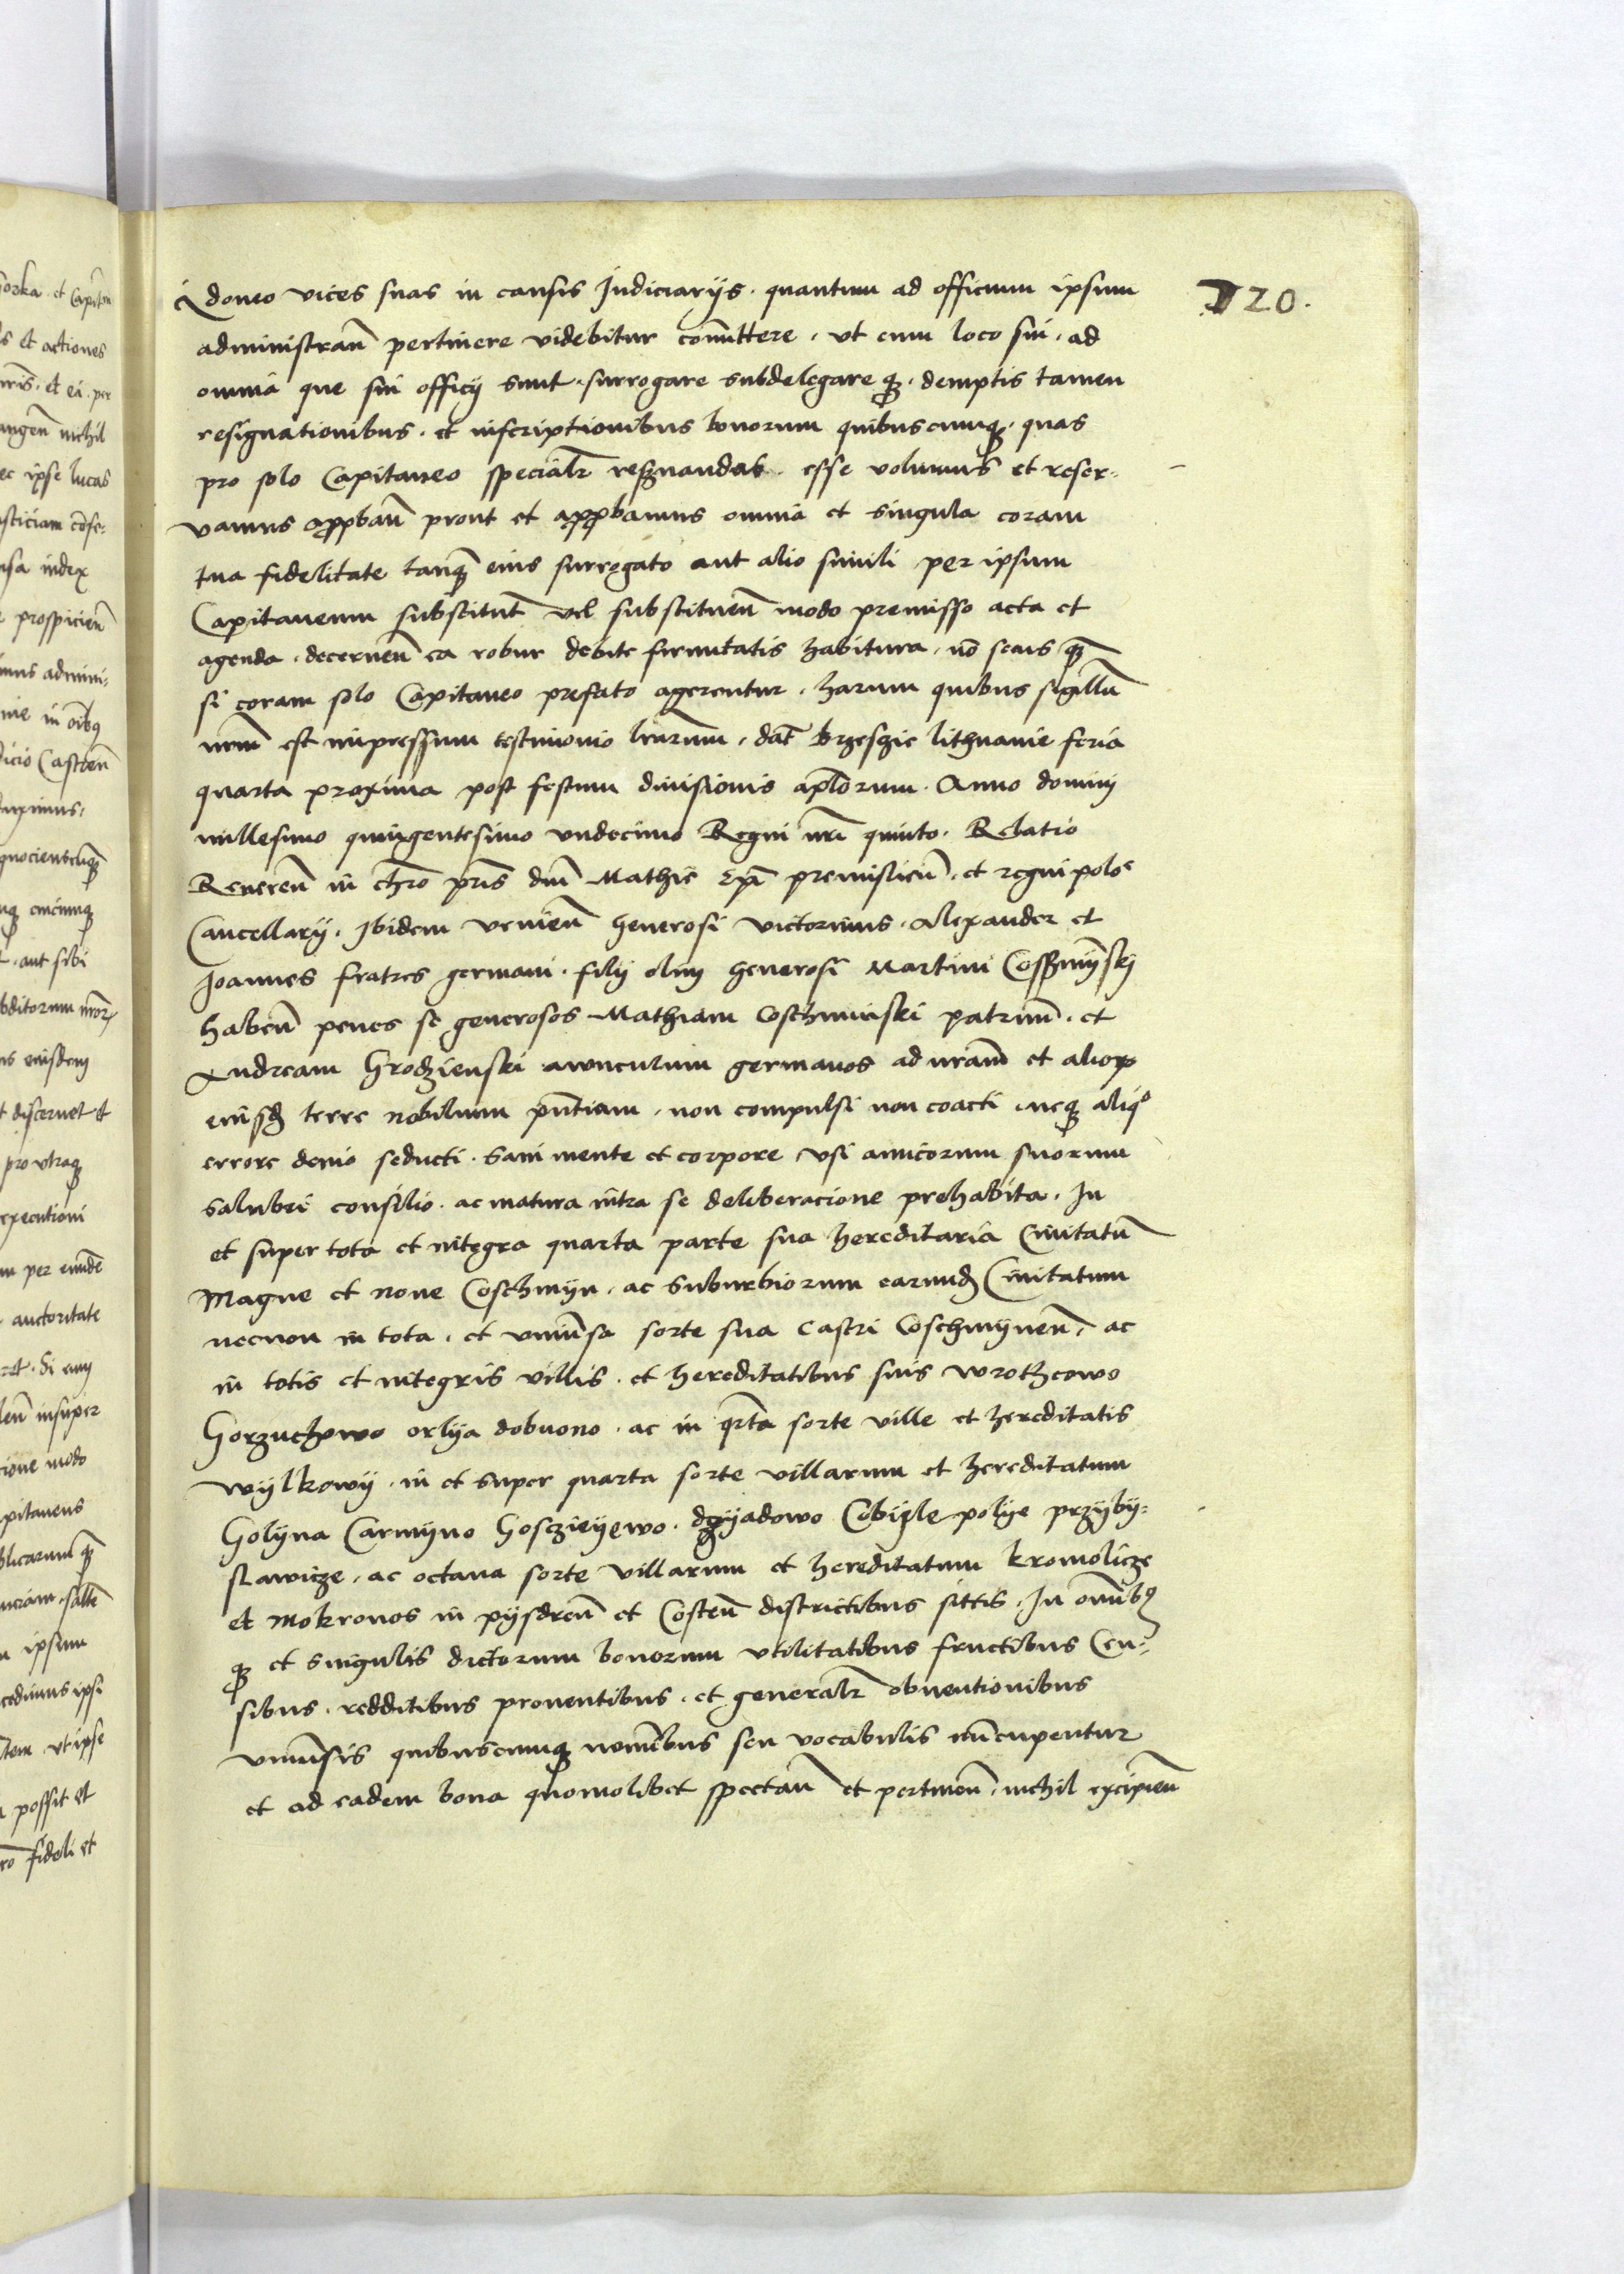 120.
Idoneo vices suas in causis Iudiciarijs · quantum ad officium ipsum
administran̄ pertinere videbitur com̄ittere · vt eum loco sui · ad
omnia que sui officij sunt · surrogare subdelegare qꝫ · demptis tamen
resignationibus · et inscriptionibus bonorum quibuscumqꝫ · quas
pro solo Capitaneo specialr̄ resignandas esse volumus et reser-
vamus app̱ban̄ prout et app̱bamus omnia et singula coram
tua fidelitate tanqꝫ eius surrogato aut alio simili per ipsum
Capitaneum substitut̄ vel substituen̄ modo premisso acta et
agenda · decernen̄ ea robur debite firmitatis habitura · nō secus qꝫ
si coram solo Capitaneo prefato agerentur · harum quibus sigillū
nrm̄ est impressum testimonio lrārum · dat̄ brzeszie lithuanie feria
quarta proxima post festum diuisionis apl̄orum · Anno dominj
millesimo quingentesimo vndecimo Regni nrī quinto · Relatio
Reueren̄ in chrō pr̄is dnī Mathie Epī premislien̄ · et regni poloe
Cancellarij · Ibidem venien̄ generosi victorinus · Alexander et
Joannes fratres germani · filij olim generosi Martini Cossmÿnskÿ
haben̄ penes se generosos Mathiam Coschminski patruū · et
Andream Grodzienski auunculum germanos ad nr̄am et alioꝝ
eiusdꝫ terre nobilium pn̄tiam · non compulsi non coacti · neqꝫ aliqo
errore deuio seducti · sani mente et corpore vsi amicorum suorum
salubri consilio · ac matura intra se deliberacione prehabita · In
et super tota et integra quarta parte sua hereditaria Ciuitatū
Magne et noue Coschmÿn · ac suburbiorum earundꝫ Ciuitatum
necnon in tota · et vniūsa sorte sua Castri Coschmÿnen̄ · ac
in totis et integris villis · et hereditatibus suis wrothcowo
Gorzuchowo orlÿa dobuono · ac in qrta sorte ville et hereditatis
wÿlkowÿ · in et super quarta sorte villarum et hereditatum
Golÿna Carmÿno Gosczieÿewo · dzÿadowo Cobÿle polÿe przÿbÿ-
slawicze · ac octaua sorte villarum et hereditatum kromolicze
et Mokronos in pÿsdren̄ et Costen̄ districtibus sittis · In omībꝫ
qꝫ et singulis dictorum bonorum vtilitatibus fructibus Cen-
sibus · redditibus prouentibus · et generalr̄ obuentionibus
vniūsis quibuscumqꝫ nomībus seu vocabulis nūcupentur
et ad eadem bona quomolibet spectan̄ et pertinen̄ · nichil excipien̄